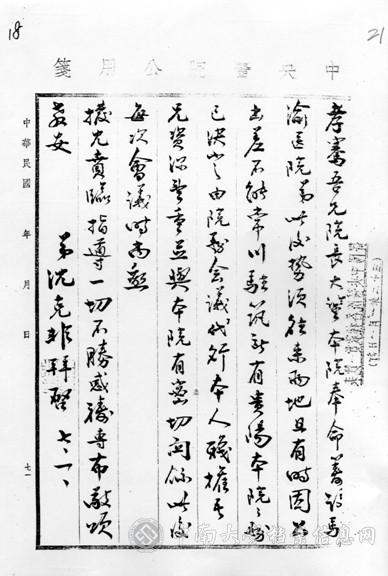 18
21
中央醫院公用箋
孝騫吾兄院長大鑒本院奉命籌設馬
渝医院弟此後勢須往来兩地且有時因公
出差不能常川駐筑所有貴陽本院之務
已决定由院務会議代行本人職權吾
兄資深望重且與本院有密切関係此後
每次會議時尚懇
撥冗賁臨指導一切不勝感禱專布敬頌
教安
弟沈克非拜啓 七、一、
中華民國 年 月 日
七一